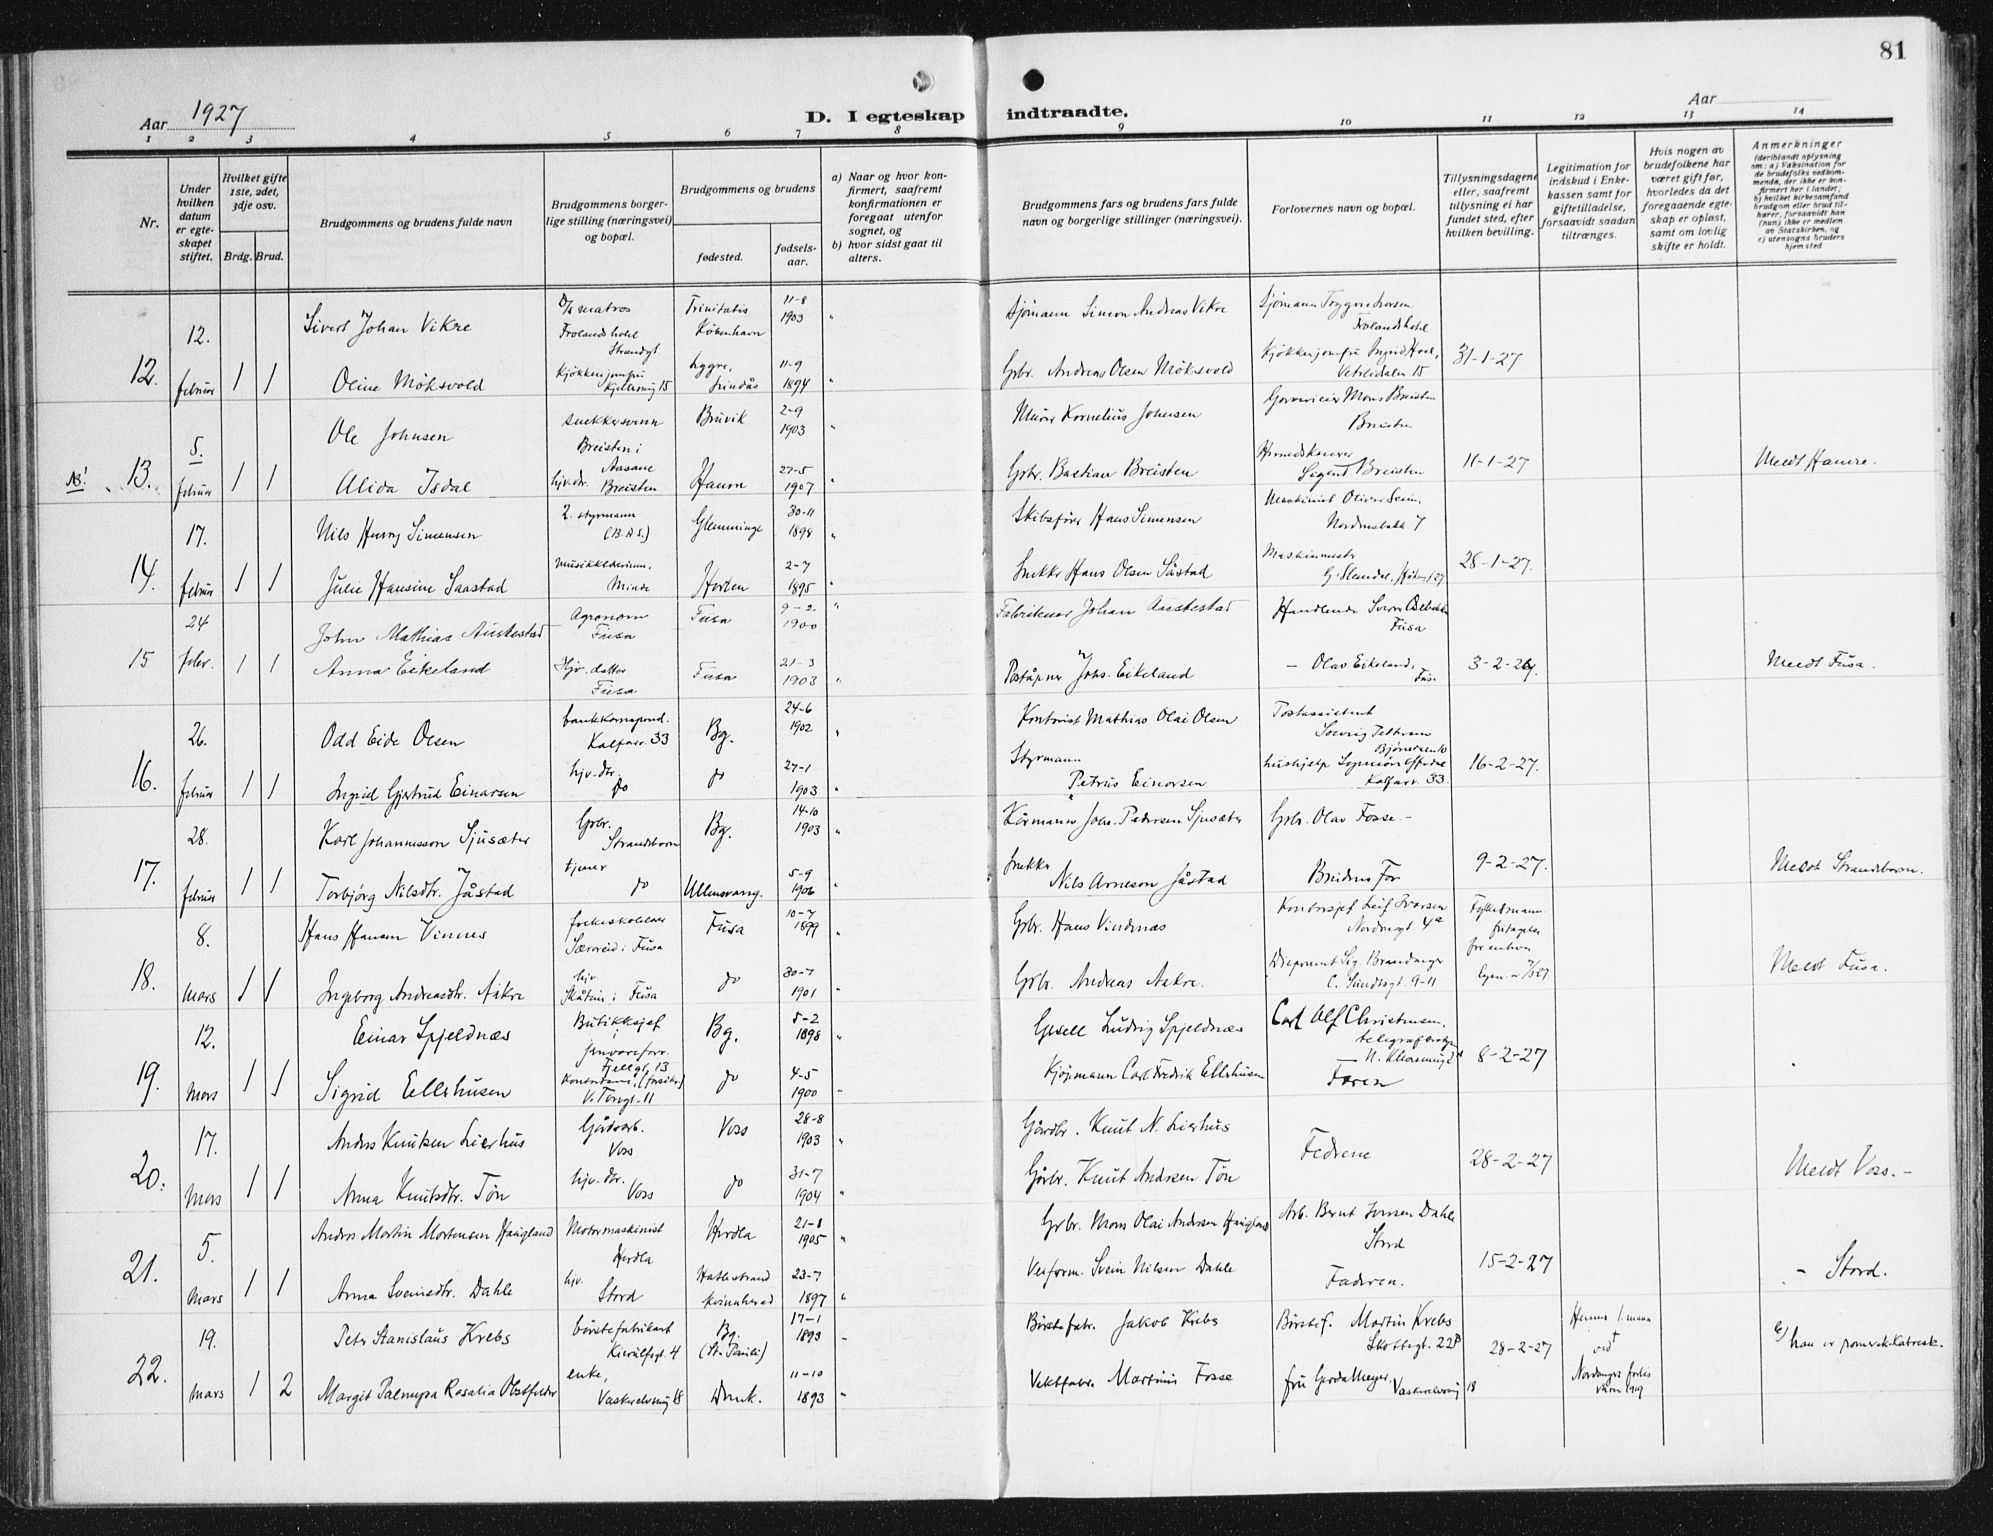 81
Aar 1927
D. I egteskap indtraadte.
Aar
1 2 3 4 5 6 7 8 9 10 11 12 13 14
Nr.
Under hvilken datum er egteskapet stiftet.
Hvilket gifte 1ste, 2det, 3dje osv.
Brdg. Brud.
Brudgommens og brudens fulde navn
Brudgommens borgerlige stilling (næringsvei) og bopæl.
Brudgommens og brudens
fødested.
fødselsaar.
a) Naar og hvor konfirmert, saafremt konfirmationen er foregaat utenfor sognet, og
b) hvor sidst gaat til alters.
Brudgommens fars og brudens fars fulde navn og borgerlige stillinger (næringsvei).
Forlovernes navn og bopæl.
Tillysningsdagene eller, saafremt tillysning ei har fundet sted, efter hvilken bevilling.
Legitimation for indskud i Enkekassen samt for giftetilladelse, forsaavidt saadan tiltrænges.
Hvis nogen av brudefolkene har været gift før, hvorledes da det foregaaende egteskap er opløst, samt om lovlig skifte er holdt.
Anmerkninger (deriblandt oplysning om: a) Vaksination for de brudefolks vedkommende, der ikke er konfirmert her i landet; b) hvilket kirkesamfund brudgom eller brud tilhører, forsaavidt han (hun) ikke er medlem av Statskirken, og c) utensogns bruders hjemsted
12. 12. februar 1 1
Sivert Johan Vikre matros Trinitatis København 11-8 1903 Sjømann Simon Andreas Vikre Sjømann
Oline Möksvold Kjøkkenjomfru 15 Lindås 11-9 1894 Grbr. Andreas Olsen Möksvold Kjøkkenjomfru Ingrid Vetrlidalm 15 31-1-27
NB! 13. 5. februar 1 1
Ole Johnsen snekkersvenn Breisten i Aasane Bruvik 2-9 1903 Murer Kornelius Johnsen Mons Breisten Breisten
Alida Isdal hjv. dr. Breisten Hamre 27-5 1907 Grbr. Bastian Breisten Breisten 11-1-27 Meldt Hamre.
14. 17. februar 1 1
Nils Henry Simensen 2. styrmann (B.D.S.) Glemminge 30-11 1898 Skibsfører Hans Simensen Maskinist
Julie Hansine Saastad Minde Horten 2-7 1895 Snekker Hans Olsen Såstad Maskinmester 28-1-27.
15 24 febr. 1 1
John Mathias Austestad Agronom Fusa Fusa 9-2 1900 Fabrikeier Johan Austestad Handlende Fusa
Anna Eikeland Hjv. datter Fusa Fusa 21-3 1903 Poståpner Johs. Eikeland — Olav Eikeland, Fusa 3-2-27. Meldt Fusa.
16. 26. februar 1 1
Odd Eide Olsen bankkorrespond. Kalfarv. 33 Bg. 24-6 1902 Kontorist Mathias Olai Olsen Postassistent
Ingrid Gjertrud Einarsen hjv. dtr. do do 27-1 1903 Styrmann Petrus Einarsen hushjelp Kalfarv. 33 16-2-27.
17. 28. februar 1 1
Karl Johannesson Sjusæter Grbr. Strandebarm Bg. 14-10 1903 Kørmann Johs. Pedersen Sjusæter Grbr. Olav Fosse.-
Torbjørg Nilsdtr. Jåstad tjener do Ullensvang. 5-9 1906 Snekker Nils Arneson Jåstad Brudens far 9-2-27. Meldt Strandebarm.
18. 8. mars 1 1
Hans Hansen Vinnes folkeskolelærer Sævareid i Fusa Fusa 10-7 1899 Grbr. Hans Vindnæs Kontorsjef Leif Iversen Nordnesgt 4a Fylkesmann
Ingeborg Andreasdtr. Aakre hjv. Skåtun i Fusa do 30-7 1901 Grbr. Andreas Aakre. Disponent Sig. Brandanger C. Sundtsgt. 9-11 Meldt Fusa.
19. 12. mars 1 1
Einar Spjeldnæs Butikksjef i jernvareforr. Fjellgt. 13 Bg. 5-2 1898 Gesell Ludvig Spjeldnæs Carl Olf Christensen,
Sigrid Ellerhusen V. Torvgt. 11 do 4-5 1900 Kjøpmann Carl Fredrik Ellerhusen Faren 8-2-27
20. 17. mars 1 1
Anders Knutsen Lierhus Gårdarb. Voss Voss 28-8 1903 Gårdbr. Knut N. Lierhus Fedrene
Anna Knutsdtr. Tøn hjv. dtr. Voss do 31-7 1904 Gårbr. Knut Andersen Tøn 28-2-27 Meldt Voss.-
21. 5. mars 1 1
Anders Martin Mortensen Haugland Motormaskinist Herdla Herdla 21-8 1905 Grbr. Mons Olai Andersen Haugland Arb. Bernt Jonsen Dahle Stord
Anna Sveinsdtr. Dahle hjv. Stord Hatlestrand Kvinnherad 23-7 1897 Verform. Svein Nilsen Dahle Faderen. 15-2-27 - Stord.
22. 19. mars 1 2
Peter Stanislaus Krebs børstefabrikant Kierulfsgt. 4 Bg. (St. Pauli) 17-1 1893 Børstefabr. Jakob Krebs Børstef. Martin Krebs Skottegt. 22B 28-2-27 Hennes 1. mann † ved 1919 b) han er romersk-katolsk.
Margit Palmyra Rosalia Obstfelder enke, Vaskerelvsmug 18 Dram. 11-10 1893 Vektfabr. Martinus Fosse fru Gerda Meyer, Vaskerelvsmug 18